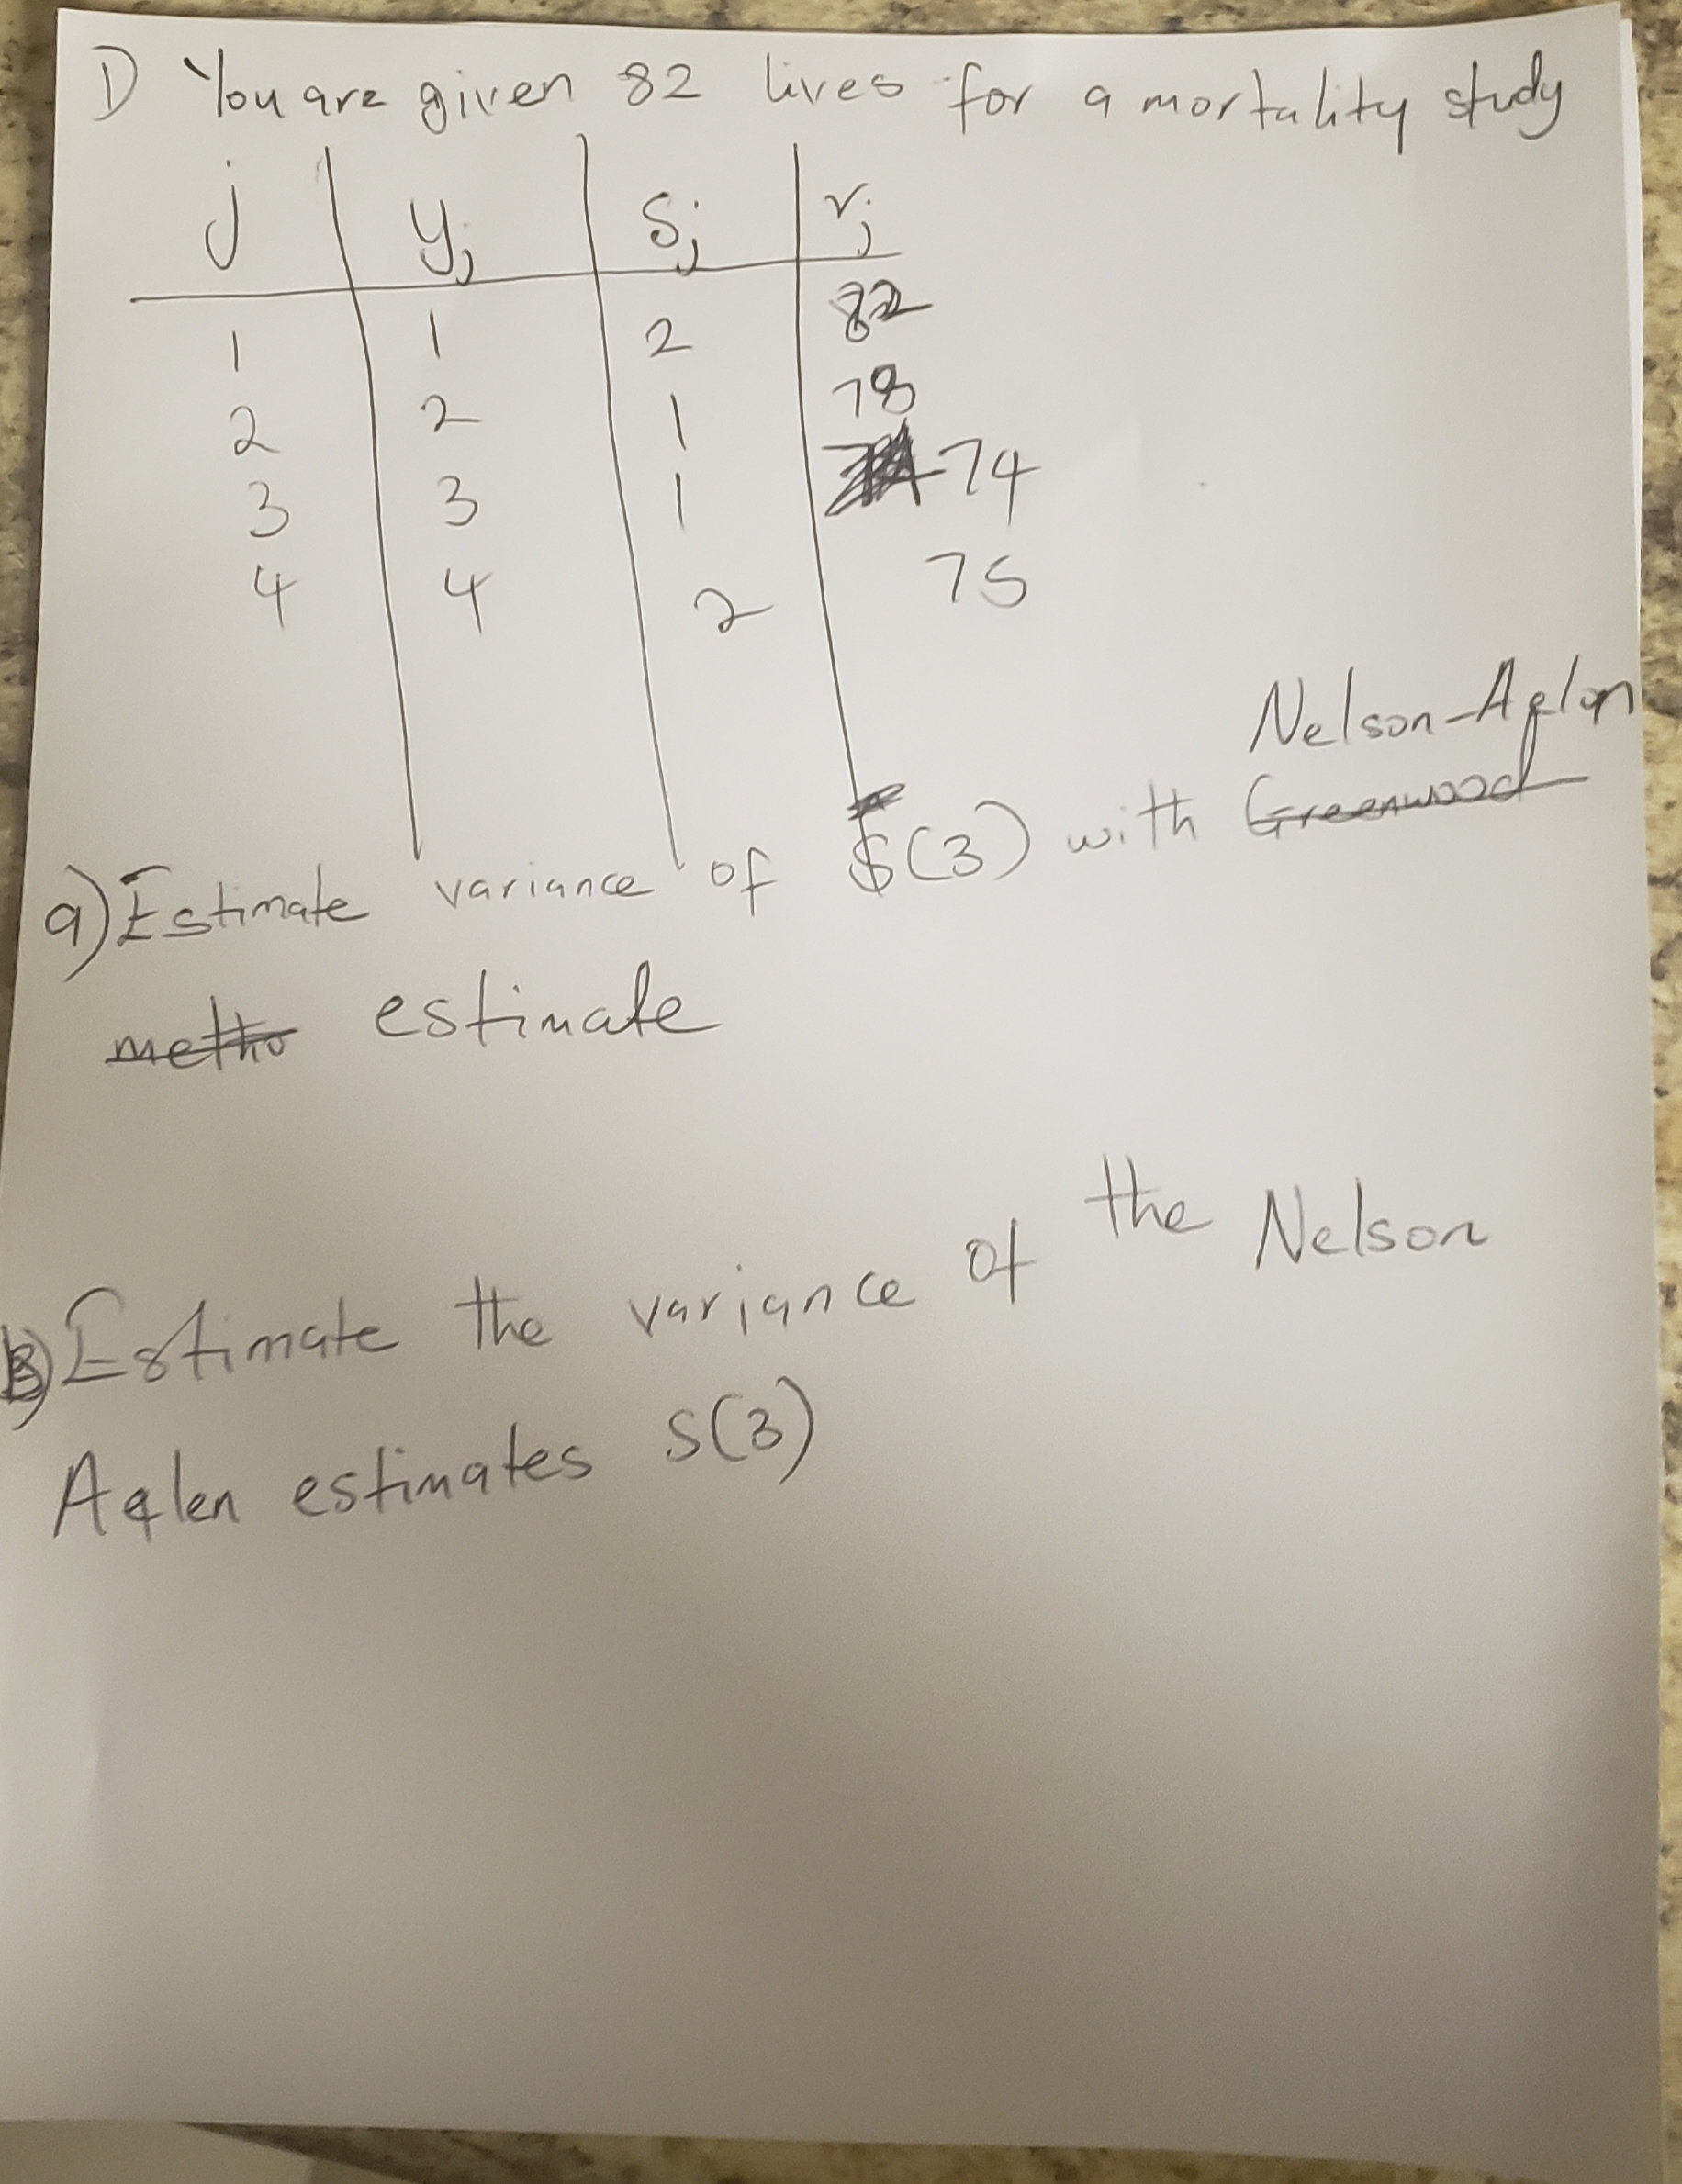 1) You are given 82 lives for a mortality study
j yj sj rj
1 1 2 82
2 2 1 78
3 3 1 74
4 4 2 75
Nelson-Aalen
a) Estimate variance of S(3) with Greenwood
metho estimate
B) Estimate the variance of the Nelson
Aalen estimates S(3)